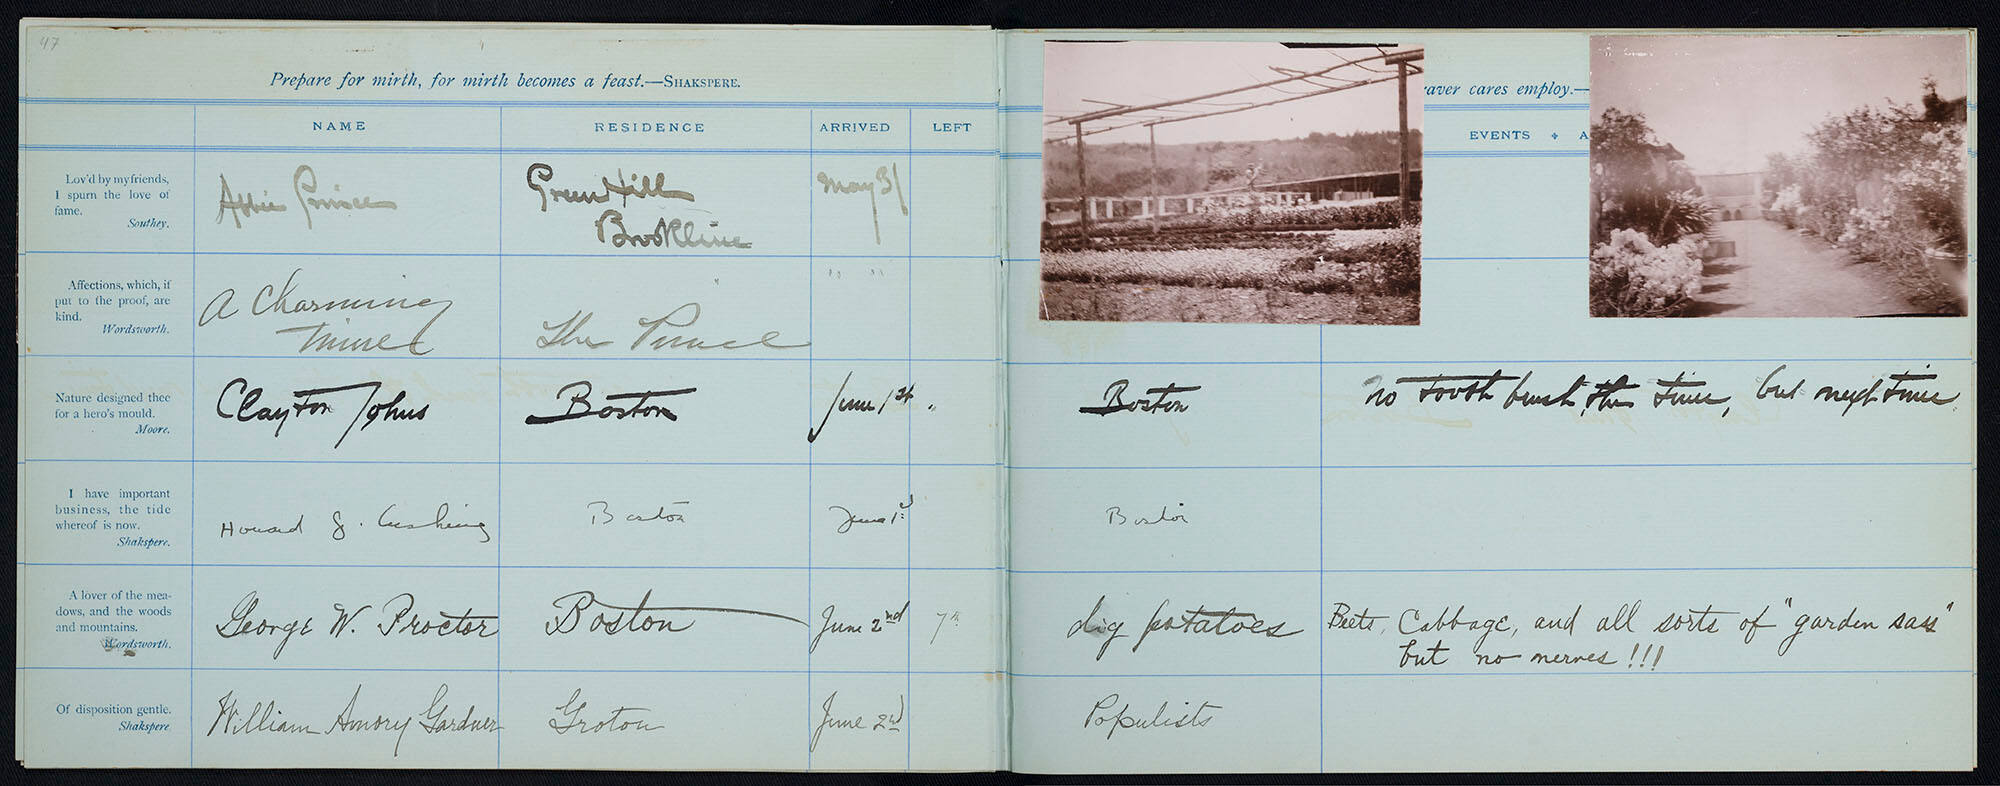 47
Prepare for mirth, for mirth becomes a feast.—SHAKSPERE.
raver cares employ.—
NAME RESIDENCE ARRIVED LEFT
EVENTS A
Lov'd by my friends,
I spurn the love of
fame.
Southey.
Abbie Prince
Green Hill
Brookline
May 31
Affections, which, if
put to the proof, are
kind.
Wordsworth.
A Charming
Time
The Prince
" "
Nature designed thee
for a hero's mould.
Moore.
Clayton Johns
Boston
June 1st
Boston
No tooth brush this time, but next time
I have important
business, the tide
whereof is now.
Shakspere.
Howard G. Cushing
Boston
June 1st
Boston
A lover of the mea-
dows, and the woods
and mountains.
Wordsworth.
George W. Proctor
Boston
June 2nd
7th
dig potatoes
Beets, Cabbage, and all sorts of "garden sass"
but no nerves!!!
Of disposition gentle.
Shakspere.
William Amory Gardner
Groton
June 2nd
Populists